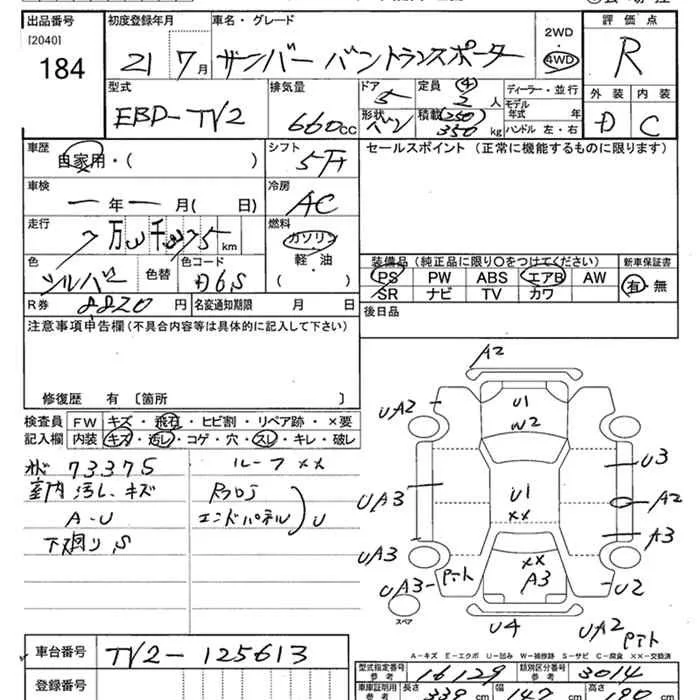 出品番号 初度登録年月 車名・グレード 評価点
[2040]
184
21 7月 サンバー バントランスポーター 2WD 4WD R
型式 排気量 ドア 定員 ④ ディーラー・並行 外装 内装
EBD-TV2 660cc 5 2人 モデル年式 年
形状 バン 積載 (250) 350kg ハンドル 左・右 D C
車歴 シフト セールスポイント(正常に機能するものに限ります)
自家用・( ) 5F
車検 冷房
ー年ー月( 日) AC
走行 燃料
7万3千375km ガソリン
色 色替 色コード 軽・油
シルバー D6S ( )
装備品(純正品に限り○をつけてください) 新車保証書
PS PW ABS エアB AW 有・無
SR ナビ TV カワ
R券 8820円 名変通知期限 月 日
後日品
注意事項申告欄(不具合内容等は具体的に記入して下さい)
修復歴 有〔箇所
検査員 FW キズ・飛石・ヒビ割・リペア跡・×要
記入欄 内装 キズ・汚レ・コゲ・穴・スレ・キレ・破レ
73375 ルーフXX
室内汚レ、キズ
A-U エンドパネル U
下廻り、S
A2
UA2 U1
W2
U3
UA3 U1 A2
XX
A3
UA3 XX
UA3-アト A3 U2
スペア
U4 UA2 アト
A-キズ E-エクボ U-凹み W-補修跡 S-サビ C-腐食 XX-交換済
車台番号 TV2-125613
型式指定番号 参考 16129 類別区分番号 参考 3014
登録番号
車庫証明用 参考 長さ 339cm 幅 147cm 高さ 190cm